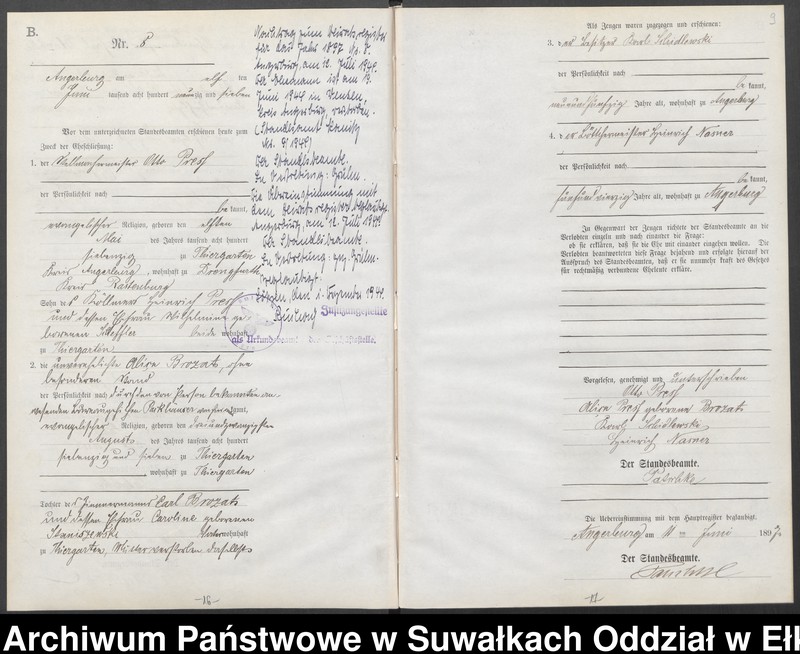 B.
Nr. 5
Angerburg am elf ten
Juni tausend acht hundert neunzig und sieben
Vor dem unterzeichneten Standesbeamten erschienen heute zum
Zweck der Eheschließung:
1. der Otto Presh
der Persönlichkeit nach
be kannt,
evangelischer Religion, geboren den elften
Mai des Jahres tausend acht hundert
siebenzig zu Thiergarten
Kreis Angerburg, wohnhaft zu
Kreis Rastenburg
Sohn des Heinrich Presh
und dessen Ehefrau Wilhelmine ge-
borenen beide wohnhaft
zu Thiergarten
2. die unverehelichte Alire Brozat, ohne
besonderen Stand
der Persönlichkeit nach durch den von Person bekannten an-
kannt,
evangelischer Religion, geboren den dreiundzwanzigsten
August des Jahres tausend acht hundert
siebenzig und sieben zu Thiergarten
wohnhaft zu Thiergarten
Tochter des Zimmermanns Carl Brozat
und dessen Ehefrau Caroline geborenen
Staniszewski wohnhaft
zu Thiergarten, Mutter verstorben daselbst
Nachtrag zum Heiratsregister
für das Jahr 1897 No. 5.
Angerburg, am 12. Juli 1944.
Der Ehemann ist am 13.
Juni 1944 in
Kreis Angerburg, verstorben.
(Standesamt
No. 9/1944)
Der Standesbeamte.
In Vertretung:
Die Übereinstimmung mit
dem Heiratsregister beglaubigt.
Angerburg, am 12. Juli 1944.
Der Standesbeamte.
In Vertretung: gez.
Beglaubigt.
den 1. November 1944.
als Urkundsbeamt der Geschäftsstelle.
-16-
9
Als Zeugen waren zugezogen und erschienen:
3. der Besitzer Karl Schidlowski
der Persönlichkeit nach
be kannt,
neunundfünfzig Jahre alt, wohnhaft zu Angerburg
4. der Böttchermeister Heinrich Namer
der Persönlichkeit nach
be kannt,
fünfundvierzig Jahre alt, wohnhaft zu Angerburg
In Gegenwart der Zeugen richtete der Standesbeamte an die
Verlobten einzeln und nach einander die Frage:
ob sie erklären, daß sie die Ehe mit einander eingehen wollen. Die
Verlobten beantworteten diese Frage bejahend und erfolgte hierauf der
Ausspruch des Standesbeamten, daß er sie nunmehr kraft des Gesetzes
für rechtmäßig verbundene Eheleute erkläre.
Vorgelesen, genehmigt und unterschrieben
Otto Presh
Alire Presh geborene Brozat
Karl Schidlowski
Heinrich Namer
Der Standesbeamte.
Die Uebereinstimmung mit dem Hauptregister beglaubigt.
Angerburg am 11 ten Juni 1897
Der Standesbeamte.
-17-
Archiwum Państwowe w Suwałkach Oddział w Ełk